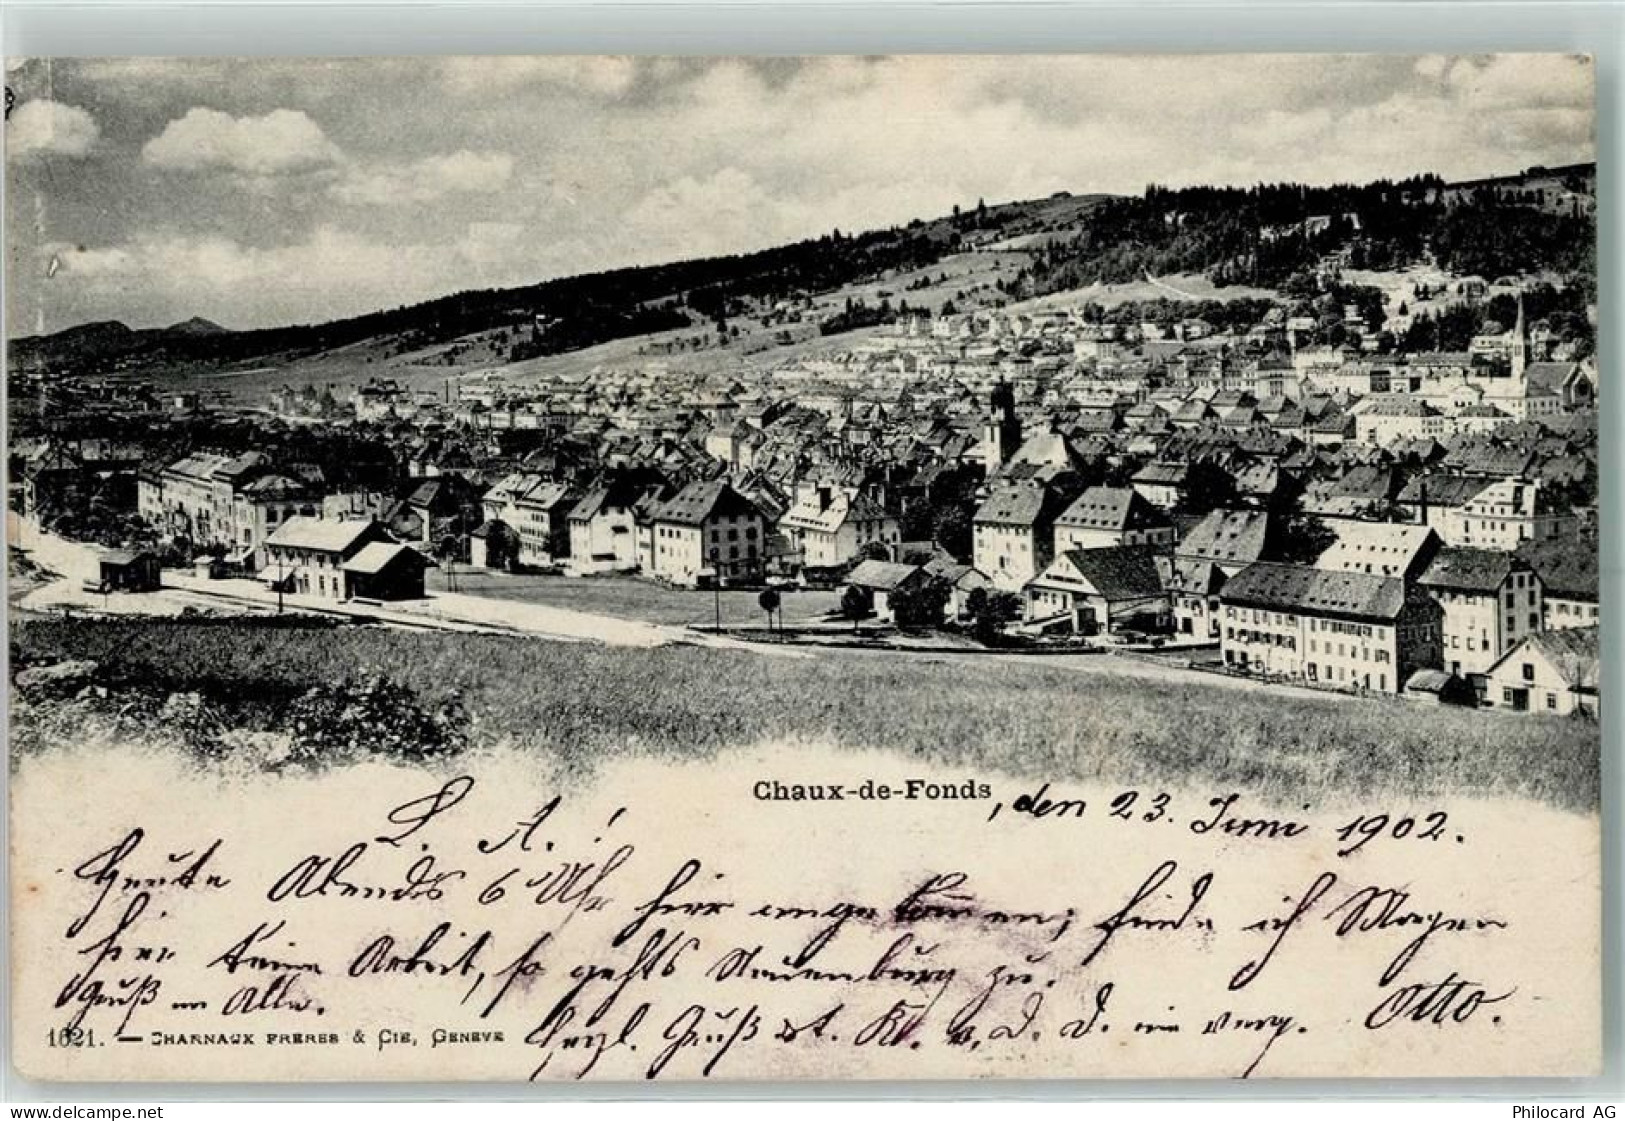 Chaux-de-Fonds, den 23. Juni 1902.
L. A.!
Heute Abends 6 Uhr hier angekommen; finde ich Morgen
hier keine Arbeit, so gehts Neuenburg zu.
Gruß an Alle.
Herzl. Gruß
Otto.
1621. — CHARNAUX FRERES & CIE, GENEVE
www.delcampe.net
Philocard AG